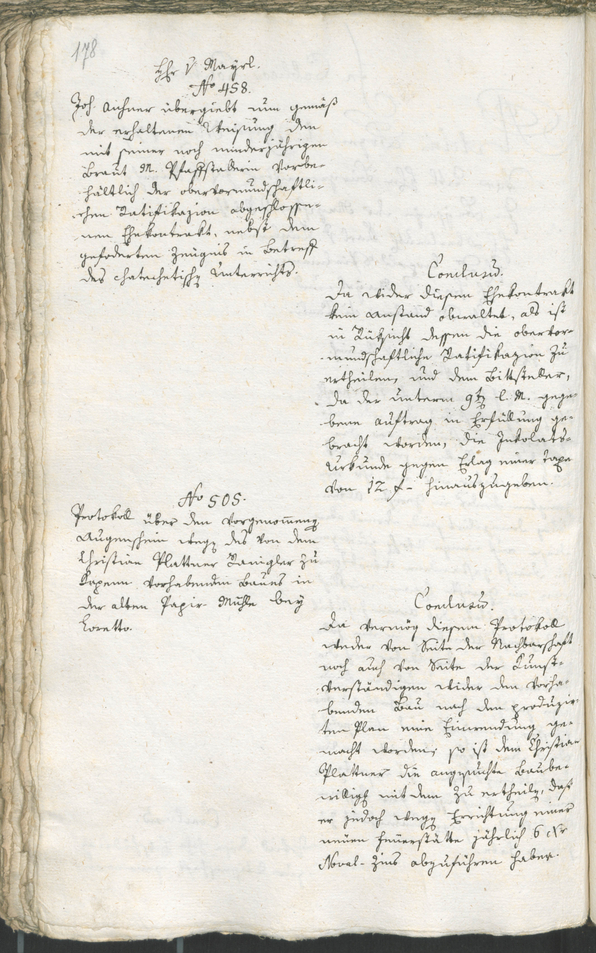 178
Hr v Mayrl.
No 458.
Joh. Aichner übergiebt nun gemäß
der erhaltenen Weisung den
mit seiner noch minderjährigen
Braut M. Pfaffstallerin vorbe-
hältlich der obervormundschaftli-
chen Ratifikazion abgeschlosse-
nen Ehekontrakt, nebst dem
geforderten Zeugnis in Betreff
des chatechetischen Unterrichts.
Conclusum.
Da wider diesen Ehekontrakt
kein Anstand obwaltet, als ist
in Rücksicht dessen die obervor-
mundschaftliche Ratifikazion zu
ertheilen, und dem Bittsteller,
da der unterm 9ten l. M. gege-
bene Auftrag in Erfüllung ge-
bracht worden, die Inkolats-
Urkunde gegen Erlag einer Taxe
von 12 f- hinauszugeben.
No 505.
Protokoll über den vorgenommenen
Augenschein wegen des von dem
Christian Plattner zu
vorhabenden Baues in
der alten Papir-Mühle bey
Loretto.
Conclusum.
Da vermög diesem Protokoll
weder von Seite der Nachbarschaft
noch auch von Seite der Kunst-
verständigen wider den vorha-
benden Bau nach dem produzir-
ten Plan eine Einwendung ge-
macht worden; so ist dem Christian
Plattner die angesuchte Baube-
willigg mit dem zu ertheilen, daß
er jedoch wegen Errichtung einer
neuen Feuerstätte jährlich 6 xr
Novel-Zins abzuführen habe.